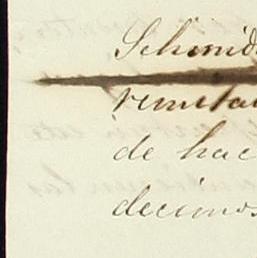 Schmid
remita
de hac
decimos